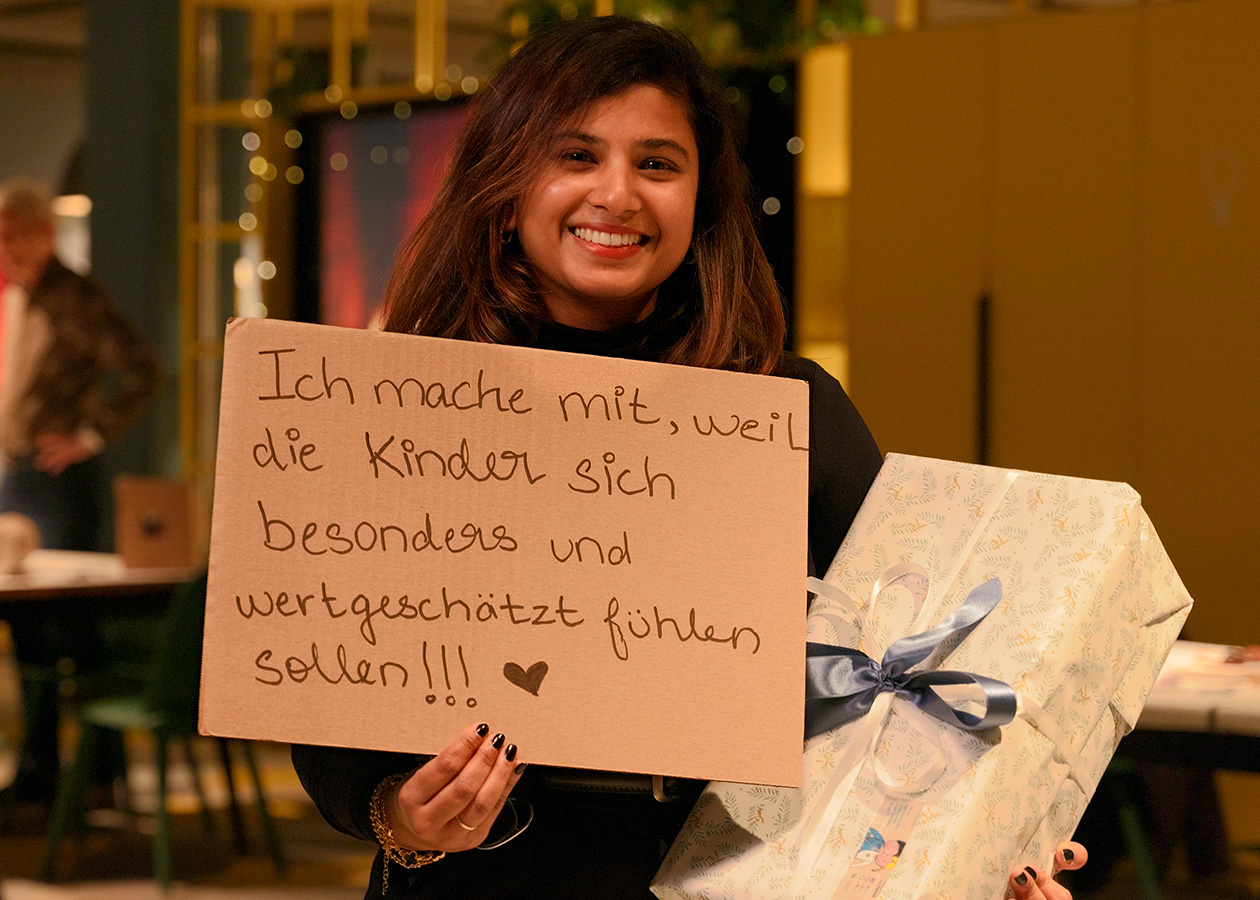 Ich mache mit, weil
die Kinder sich
besonders und
wertgeschätzt fühlen
sollen!!! ♥